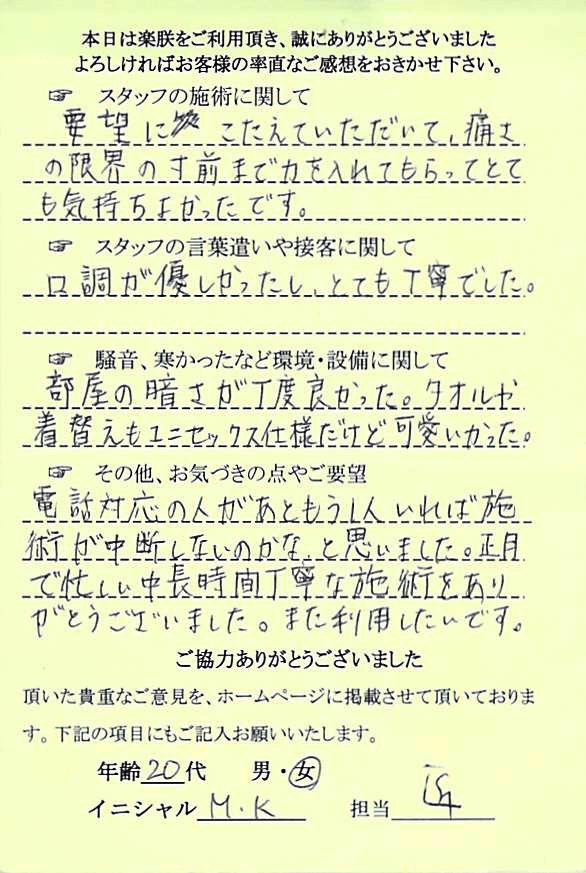 本日は楽朕をご利用頂き、誠にありがとうございました
よろしければお客様の率直なご感想をおきかせ下さい。
☞ スタッフの施術に関して
要望に こたえていただいて、痛さ
の限界の寸前まで力を入れてもらってとて
も気持ちよかったです。
☞ スタッフの言葉遣いや接客に関して
口調が優しかったし、とても丁寧でした。
☞ 騒音、寒かったなど環境・設備に関して
部屋の暗さが丁度良かった。タオルや
着替えもユニセックス仕様だけど可愛いかった。
☞ その他、お気づきの点やご要望
電話対応の人があともう1人いれば施
術が中断しないのかな、と思いました。正月
で忙しい中長時間丁寧な施術をあり
がとうございました。また利用したいです。
ご協力ありがとうございました
頂いた貴重なご意見を、ホームページに掲載させて頂いておりま
す。下記の項目にもご記入お願いいたします。
年齢 20 代 男・女
イニシャル M.K 担当